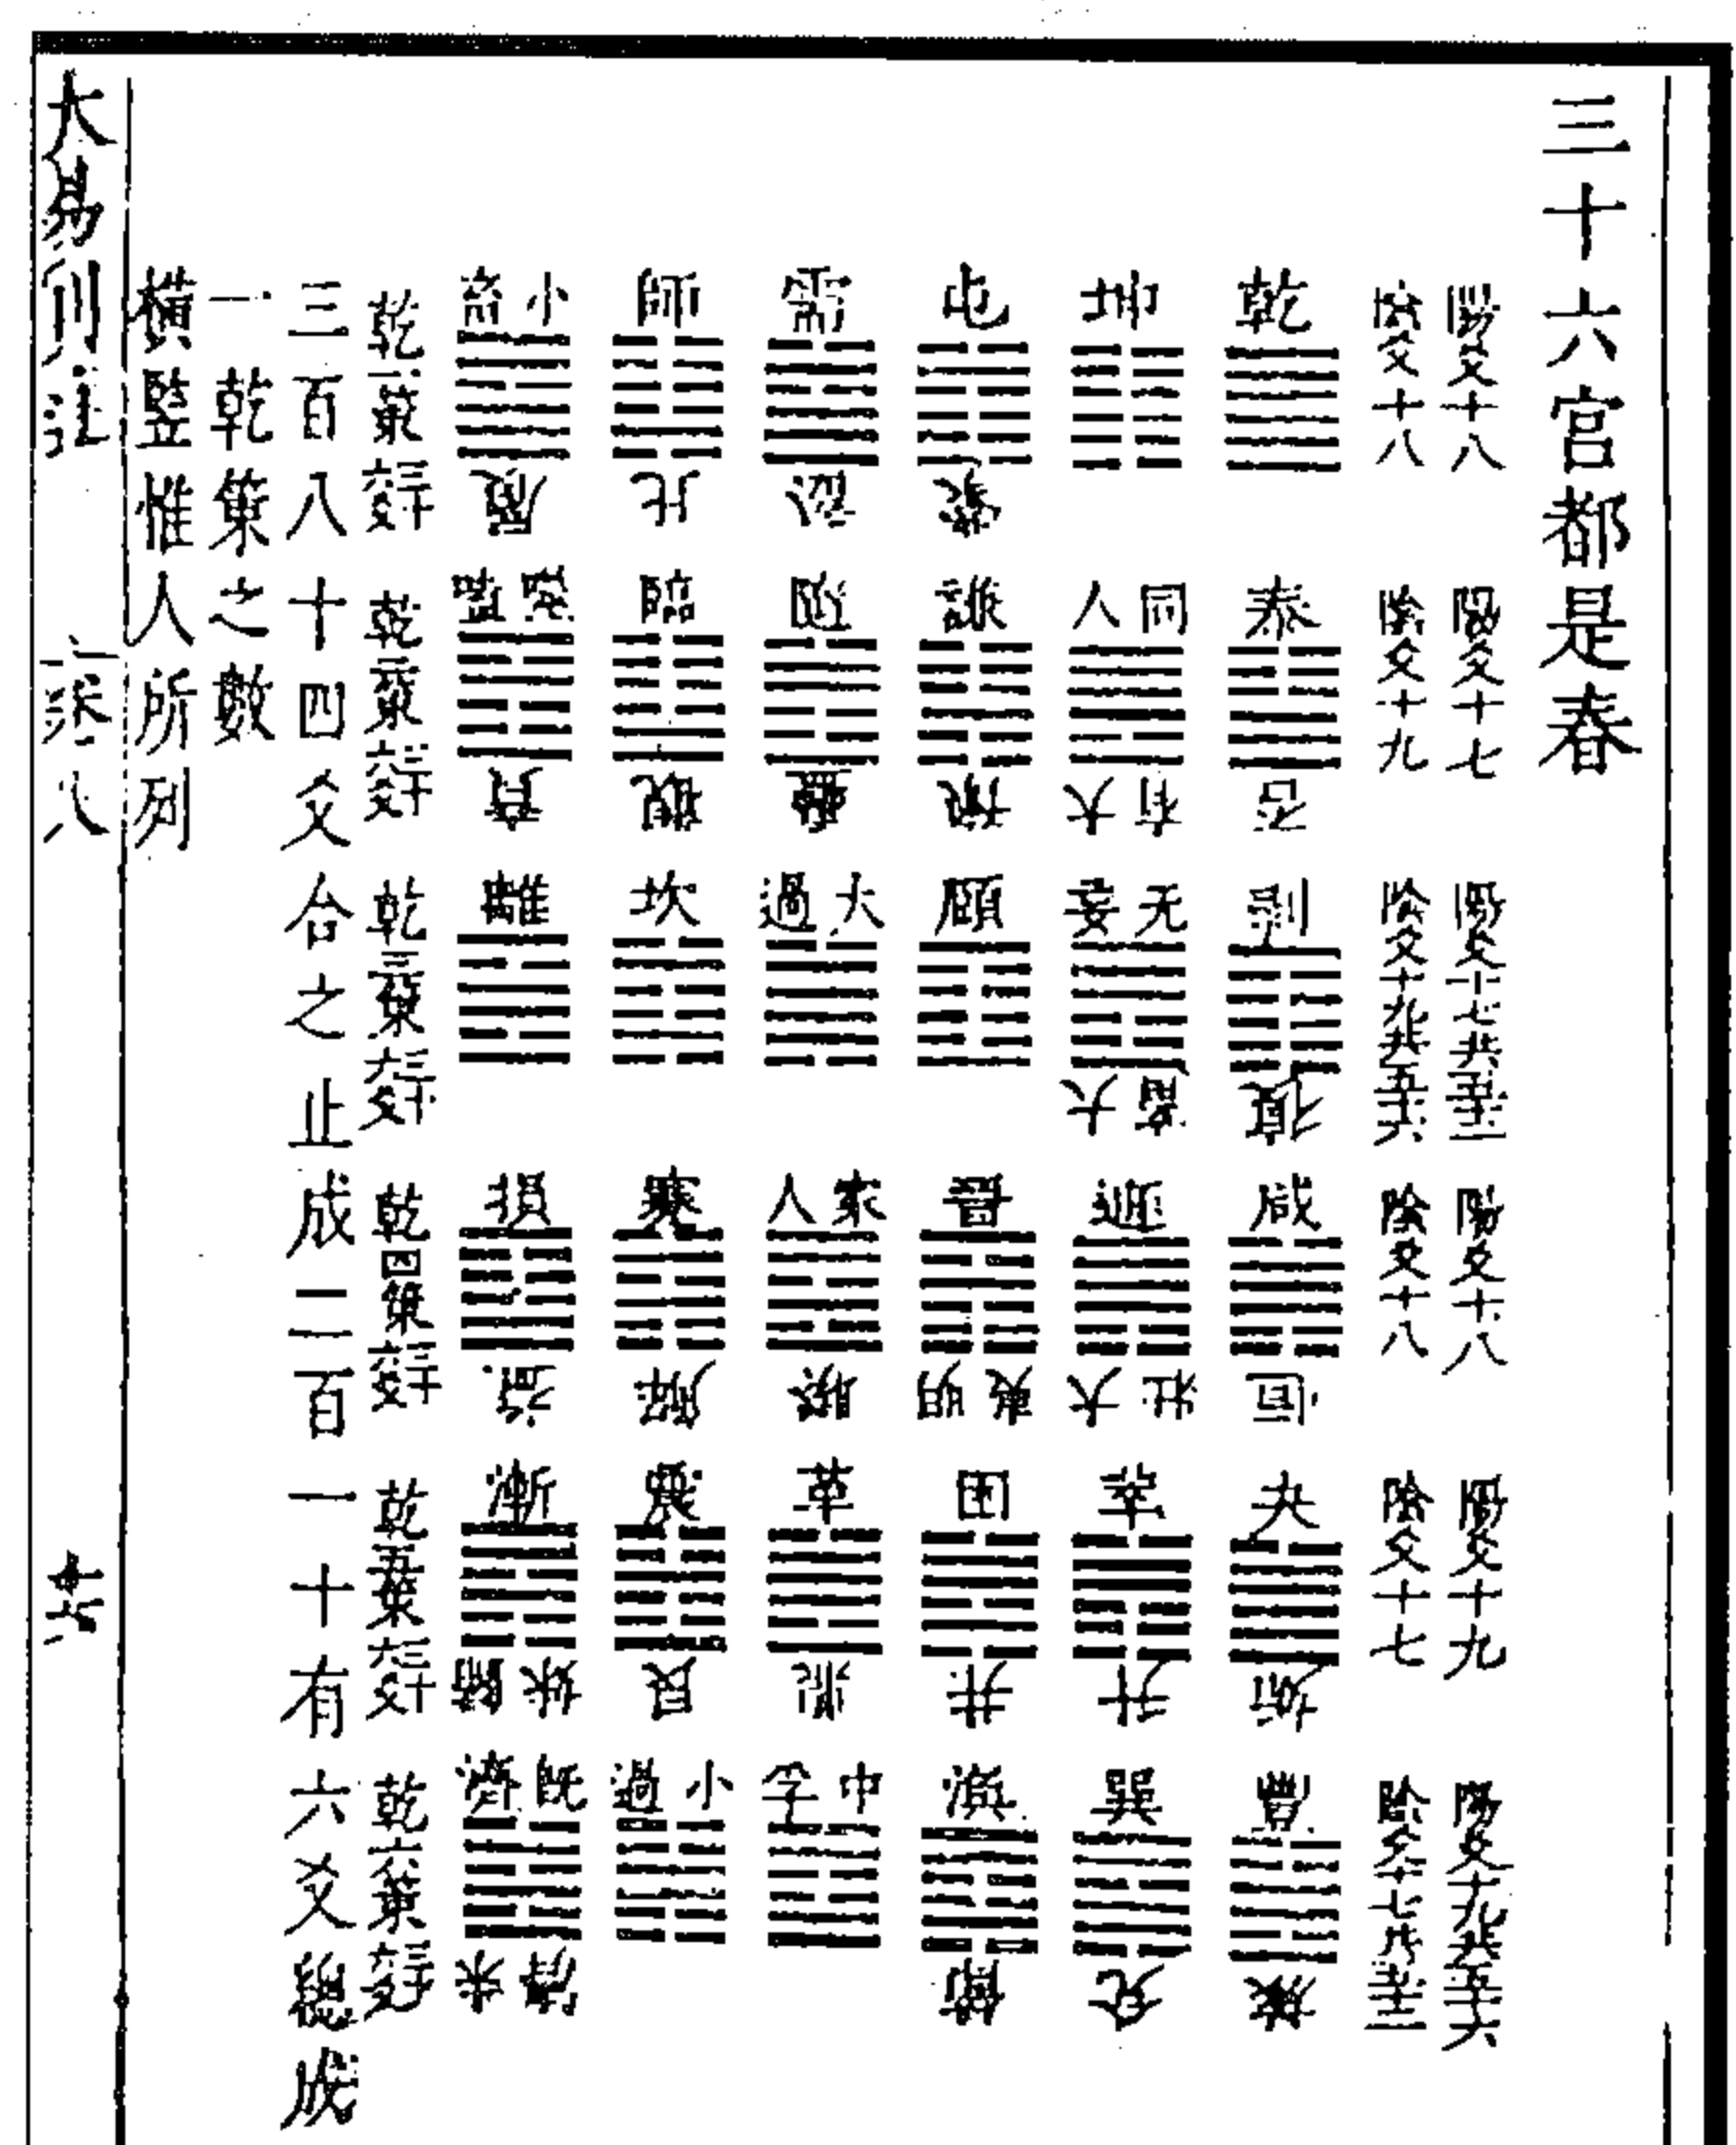 三十六宫都是春
陽爻十八 陽爻十七 陽爻十七共五十二 陽爻十八 陽爻十九 陽爻十九共五十六
陰爻十八 陰爻十九 陰爻十九共五十六 陰爻十八 陰爻十七 陰爻十七共五十二
乾 泰 否 剝 復 咸 恒 夬 姤 豐 旅
坤 同人 大有 无妄 大畜 遯 大壯 萃 升 巽 兌
屯 蒙 謙 豫 頤 晉 明夷 困 井 渙 節
需 訟 隨 蠱 大過 家人 睽 革 鼎 中孚
師 比 臨 觀 坎 蹇 解 震 艮 小過
小畜 履 噬嗑 賁 離 損 益 漸 歸妹 既濟 未濟
乾一策三十六爻 乾二策三十六爻 乾三策三十六爻 乾四策三十六爻 乾五策三十六爻 乾六策三十六爻
三百八十四爻合之止成二百一十有六爻總成
一乾策之數
橫豎惟人所列
大易則通
卷八